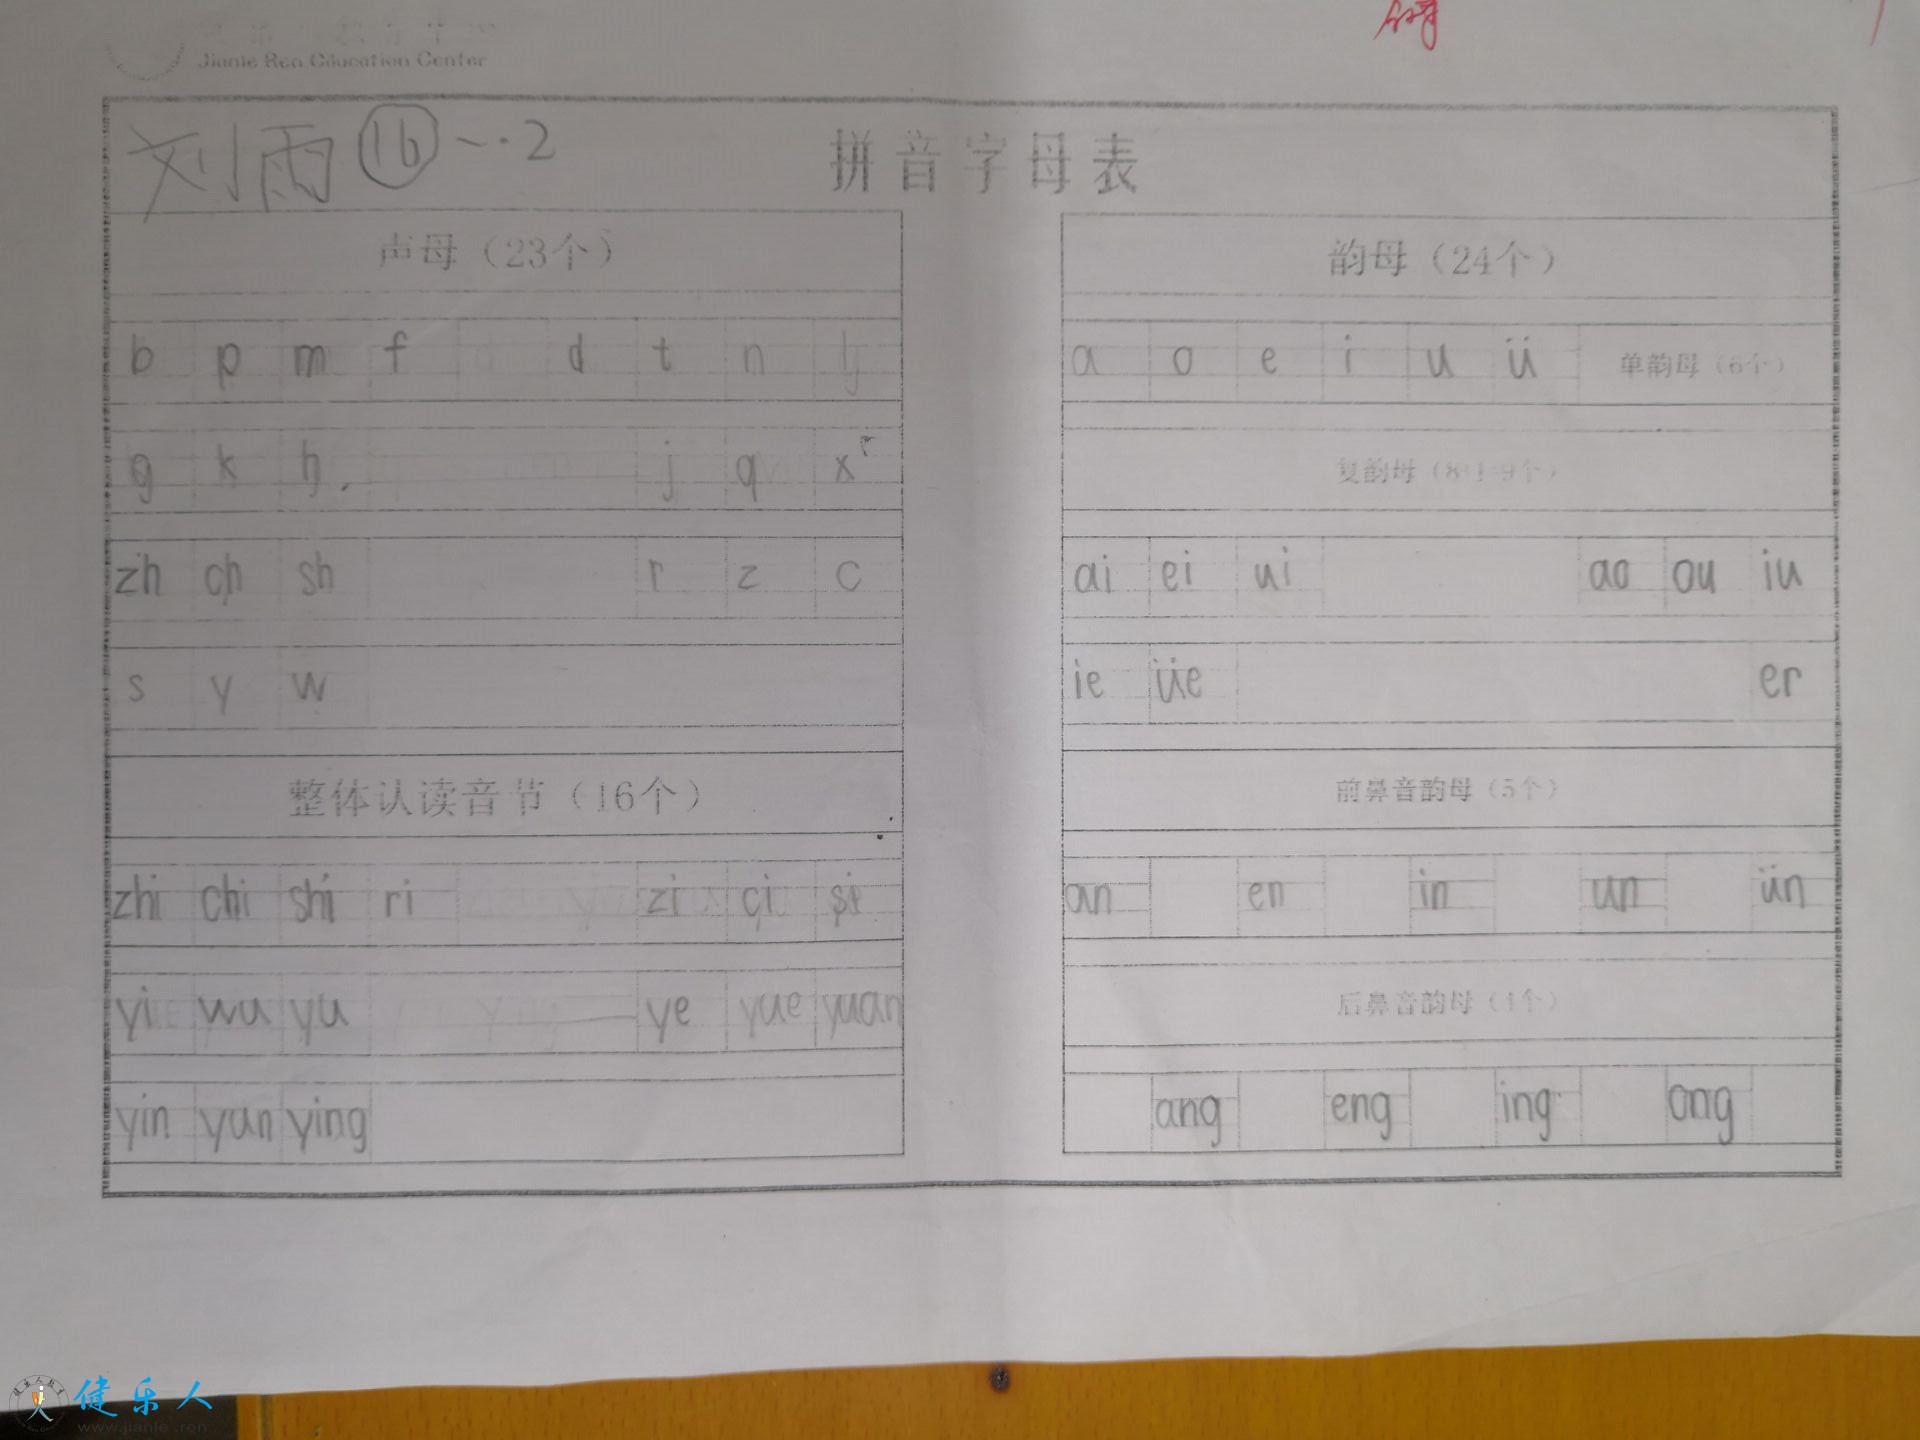 Jianle Ren Education Center
刘雨 16 一.2
拼音字母表
声母（23个）
b p m f d t n l
g k h j q x
zh ch sh r z c
s y w
整体认读音节（16个）
zhi chi shi ri zi ci si
yi wu yu ye yue yuan
yin yun ying
韵母（24个）
a o e i u ü 单韵母（6个）
复韵母（8+1=9个）
ai ei ui ao ou iu
ie üe er
前鼻音韵母（5个）
an en in un ün
后鼻音韵母（4个）
ang eng ing ong
健乐人
www.jianle.ren